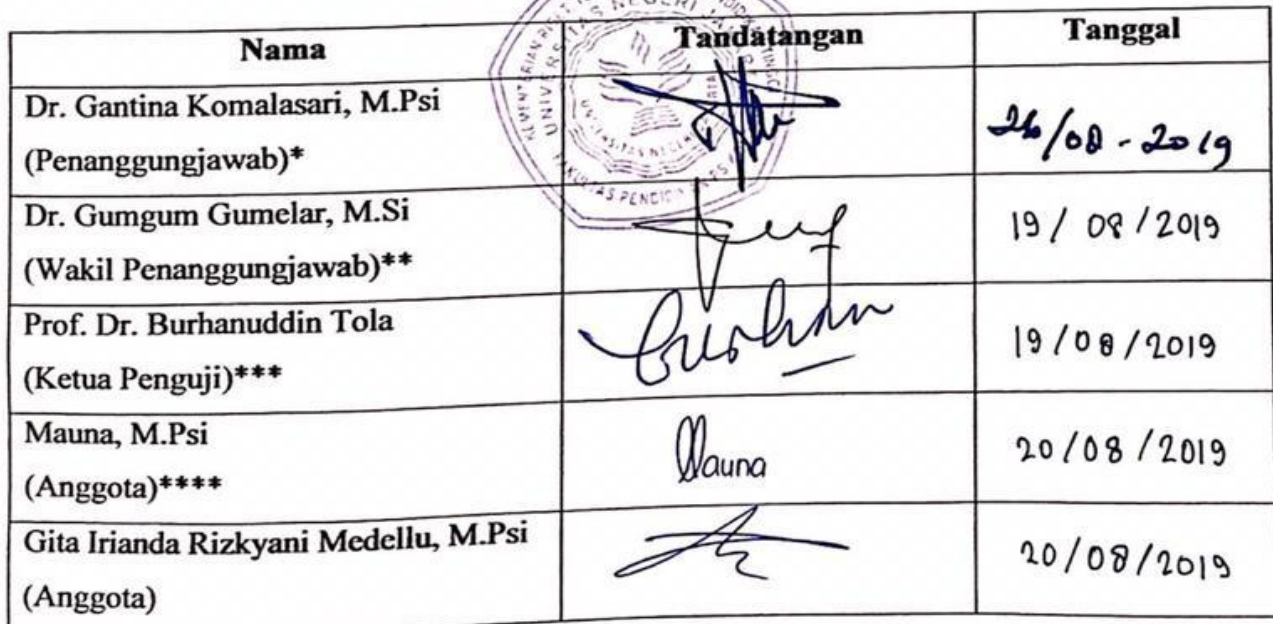 Nama Tandatangan Tanggal
Dr. Gantina Komalasari, M.Psi
(Penanggungjawab)*
26/08-2019
Dr. Gumgum Gumelar, M.Si
(Wakil Penanggungjawab)**
19/08/2019
Prof. Dr. Burhanuddin Tola
(Ketua Penguji)***
Burhan
19/08/2019
Mauna, M.Psi
(Anggota)****
Mauna
20/08/2019
Gita Irianda Rizkyani Medellu, M.Psi
(Anggota)
20/08/2019
UNIVERSITAS NEGERI
FAKULTAS PENDIDIKAN